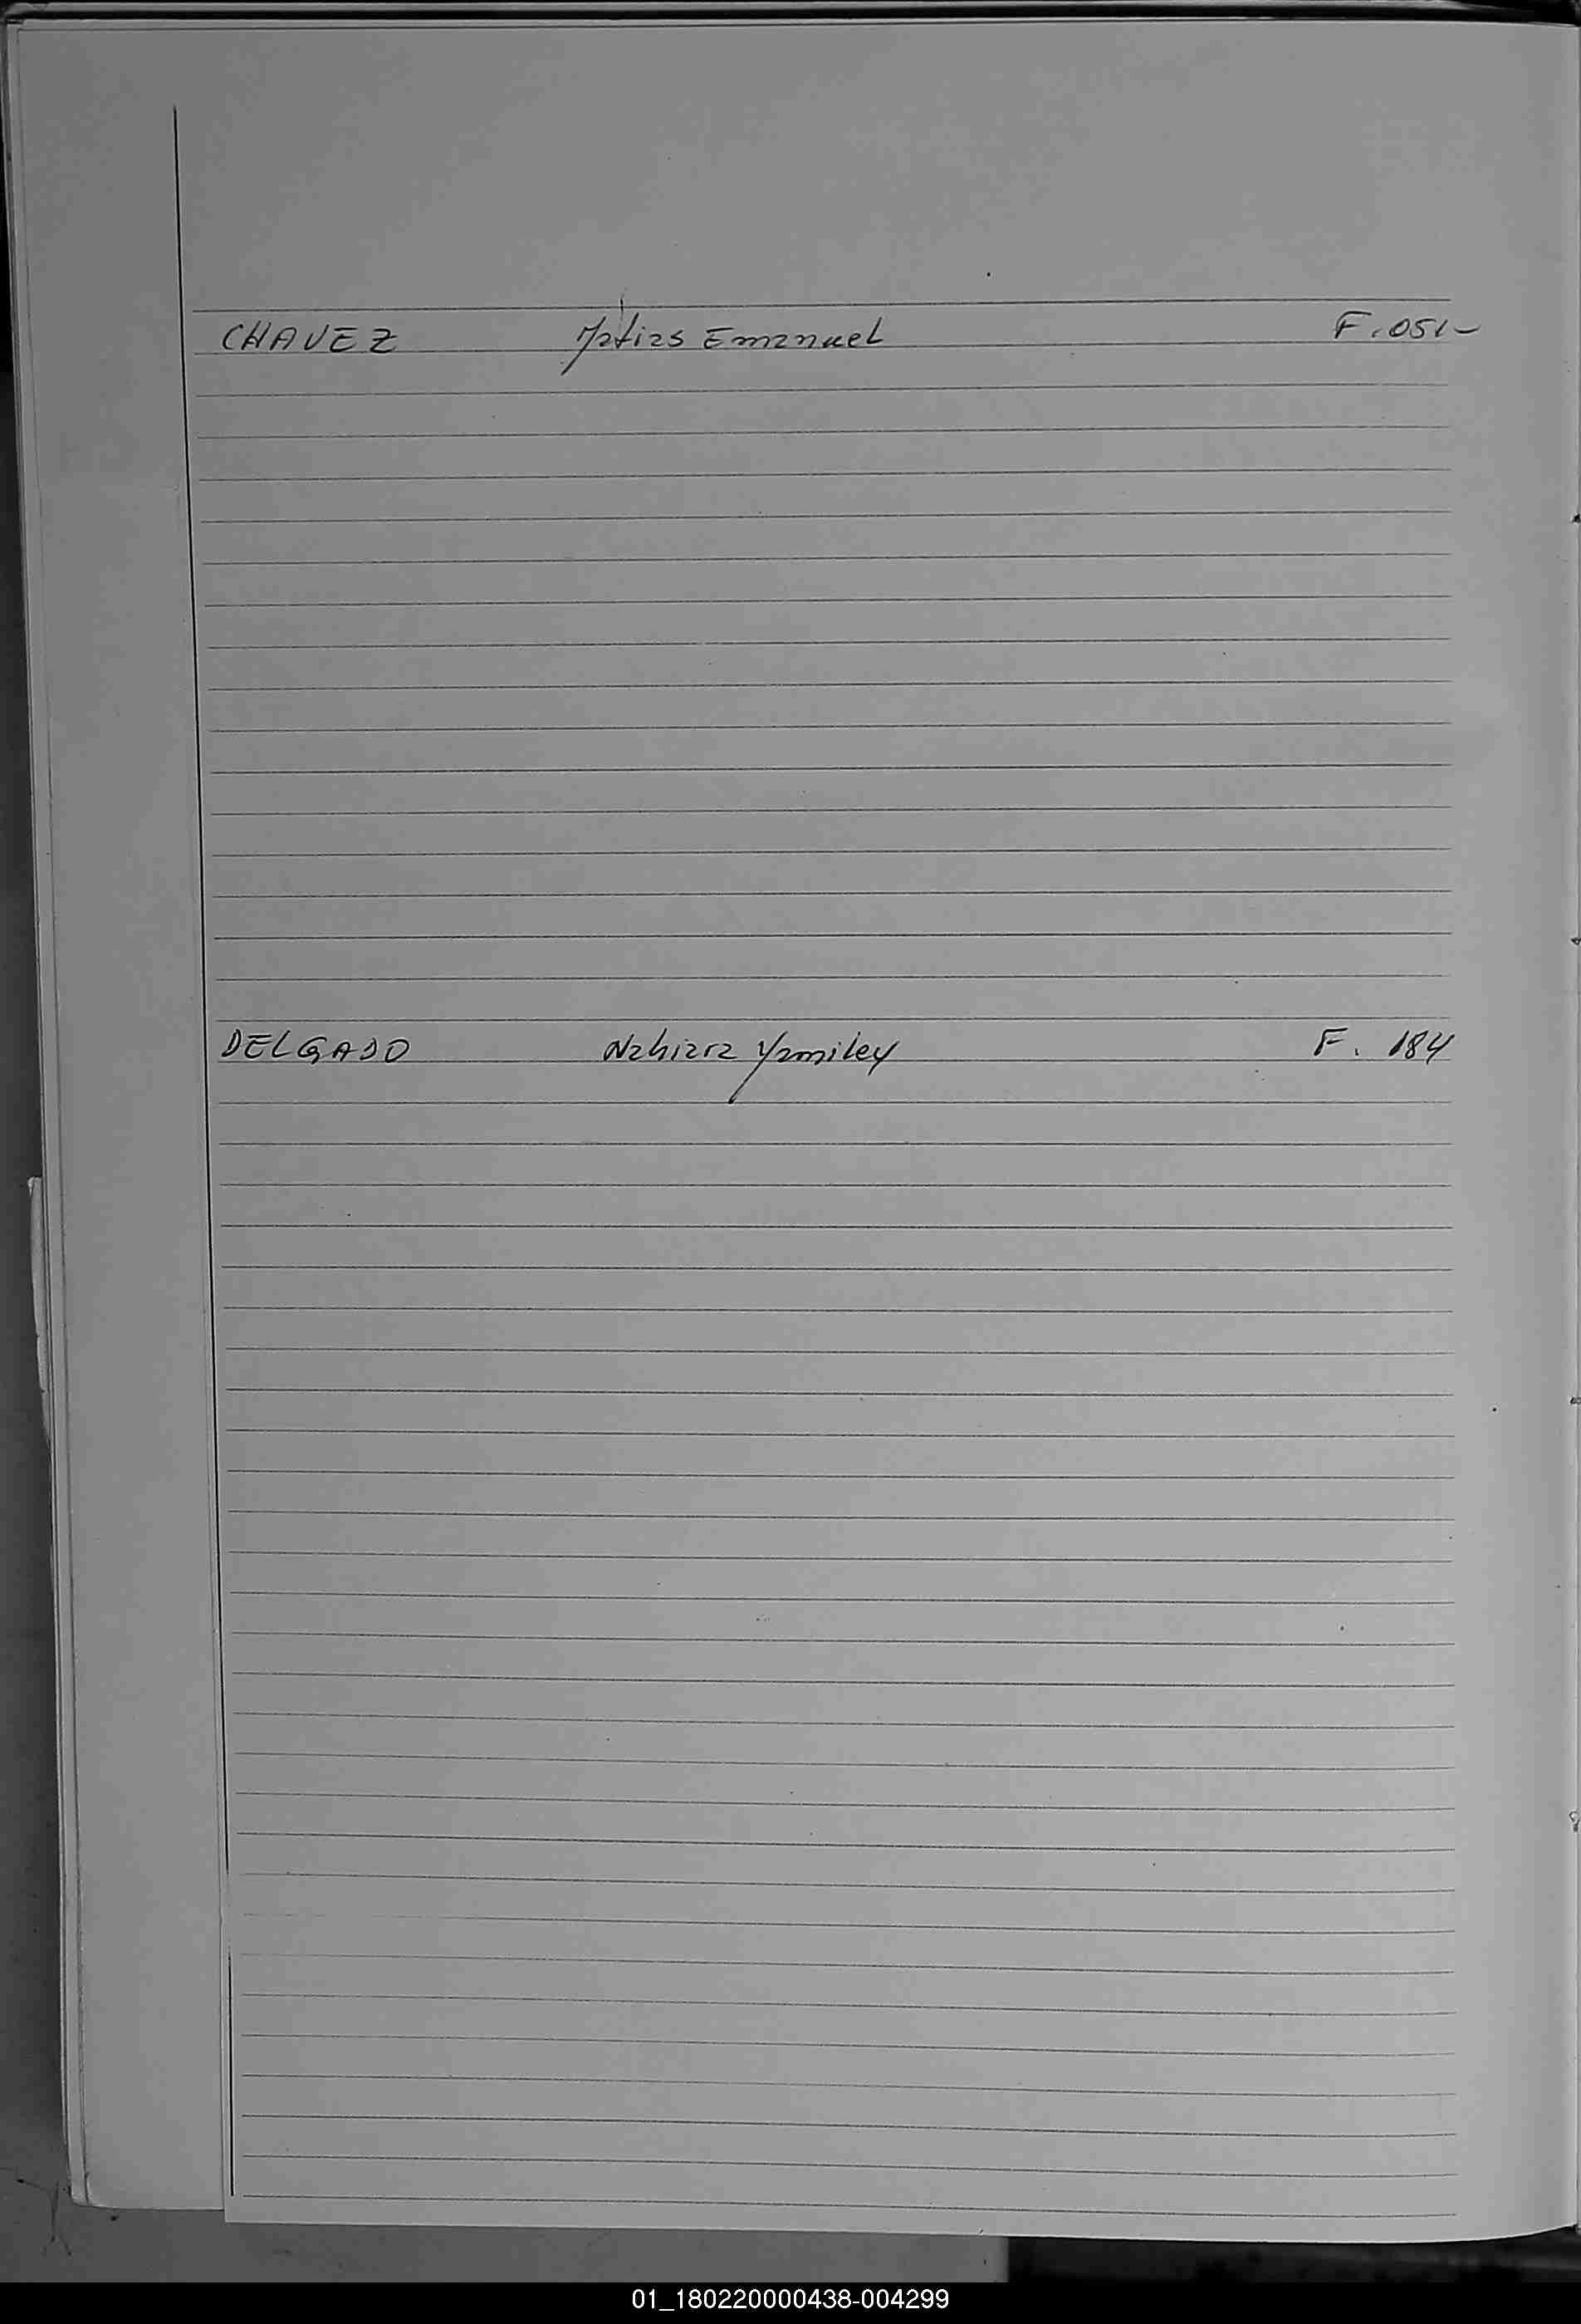 CHAVEZ Matias Emanuel F. 051-
DELGADO Nahiara Yamiley F. 184
01_180220000438-004299